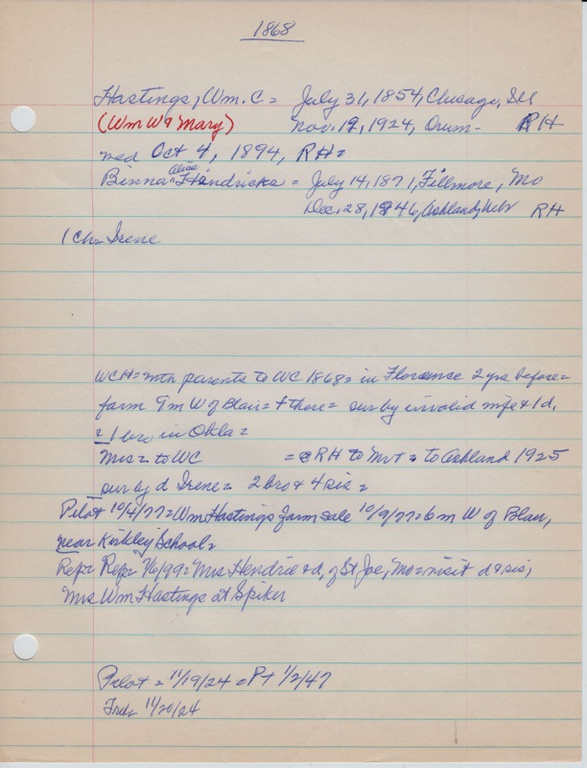 1868
Hastings, Wm. C = July 31, 1854, Chicago, Ill
(Wm W & Mary) Nov. 19, 1924, Orum - RH
med Oct 4, 1894, RH =
Binna Alice Hendricks = July 14, 1871, Fillmore, Mo
Dec. 28, 1946, Ashland, Nebr RH
1 ch = Irene
WCH = with parents to WC 1868 = in Florence 2 yrs before =
farm 9 m W of Blair = + there = sur by invalid wife & 1 d,
= 1 bro in Okla =
Mrs = to WC = RH to = to Ashland 1925
sur by d Irene = 2 bro & 4 sis =
Pilot 10/4/77 = Wm Hastings farm sale 10/9/77 = 6 m W of Blair,
near Kinkley School =
Rep = Rep = 7/6/99 = Mrs Hendric & d, of St Joe, Mo = visit d & sis,
Mrs Wm Hastings at Spiker
Pilot = 11/19/24 = PT 1/2/47
11/20/24